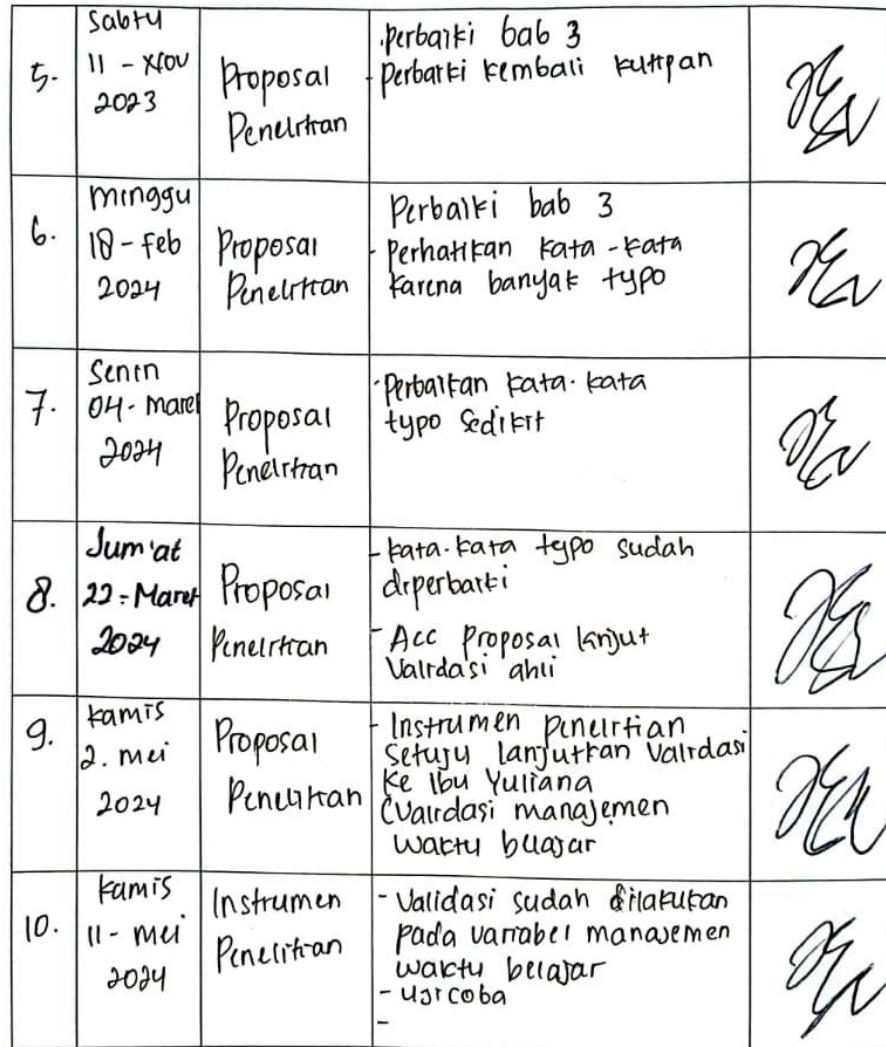 5.
Sabtu
11 - Nov
2023
Proposal
Penelitian
- Perbaiki bab 3
- Perbaiki kembali kutipan
6.
Minggu
18 - Feb
2024
Proposal
Penelitian
Perbaiki bab 3
- Perhatikan kata - kata
karena banyak typo
7.
Senin
04 - Maret
2024
Proposal
Penelitian
- Perbaikan kata - kata
typo sedikit
8.
Jum'at
22 - Maret
2024
Proposal
Penelitian
- kata - kata typo sudah
diperbaiki
- Acc Proposal lanjut
Validasi ahli
9.
Kamis
2. mei
2024
Proposal
Penelitian
- Instrumen penelitian
Setuju lanjutkan Validasi
ke Ibu Yuliana
(Validasi manajemen
waktu belajar
10.
Kamis
11 - mei
2024
Instrumen
Penelitian
- Validasi sudah dilakukan
pada variabel manajemen
waktu belajar
- ujicoba
-